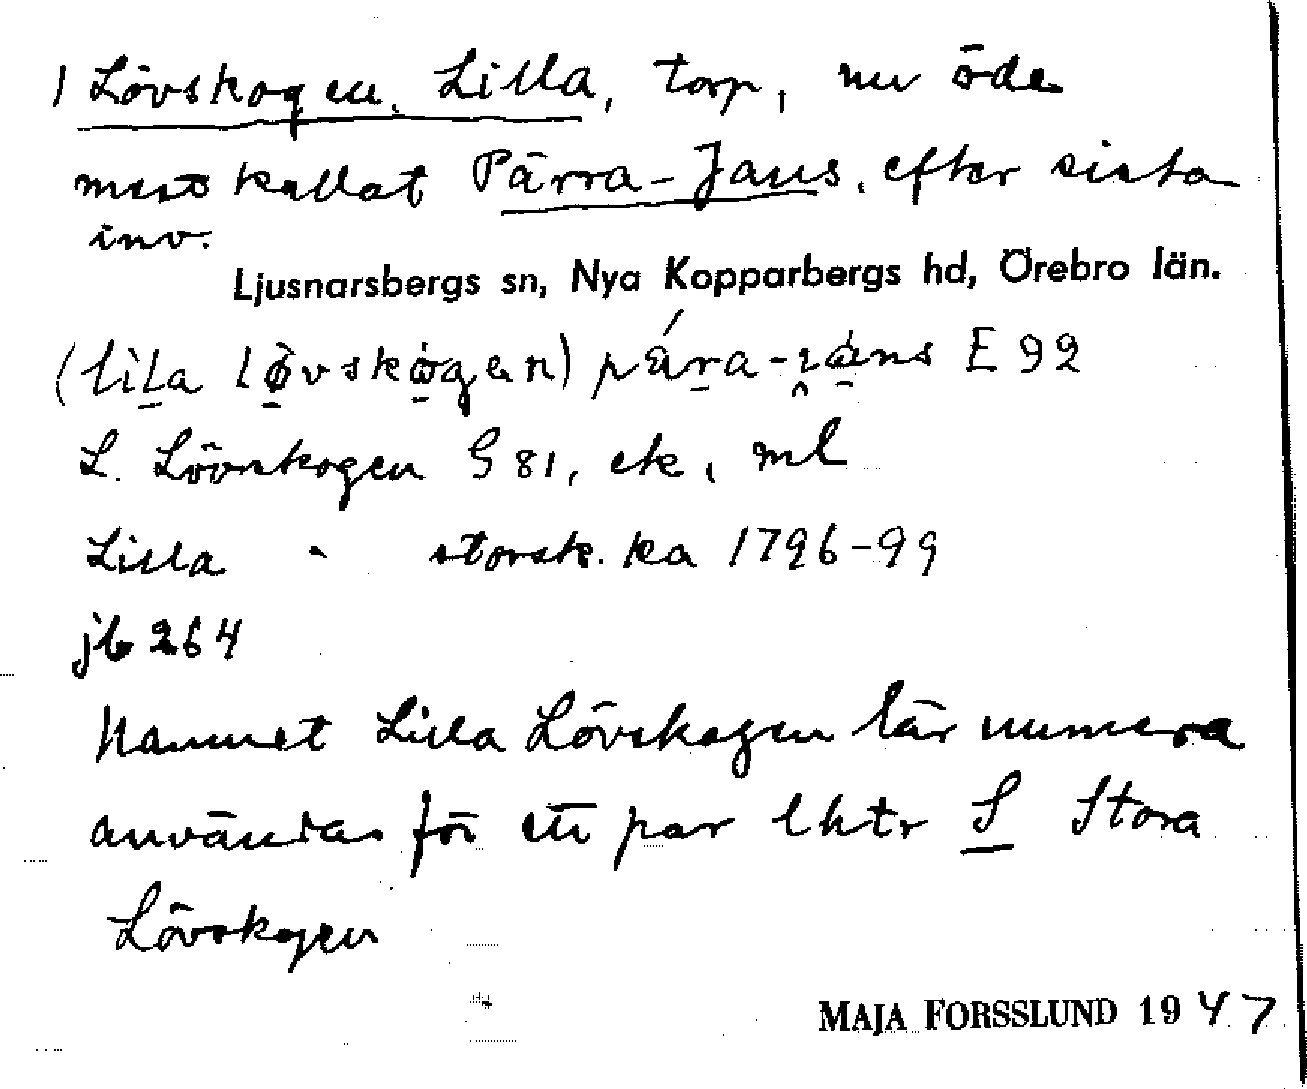 1 Lövskogen, Lilla, torp, nu öde
mest kallat Pärra-Jans, efter sista
inv.
Ljusnarsbergs sn, Nya Kopparbergs hd, Örebro län.
(lila løvskøgen) pära-jans E 92
L. Lövskogen G 81, ek, ml
Lilla " storsk. ka 1796-99
jb 264
Namnet Lilla Lövskogen lär numera
användas för ett par lhtr S Stora
Lövskogen
MAJA FORSSLUND 1947